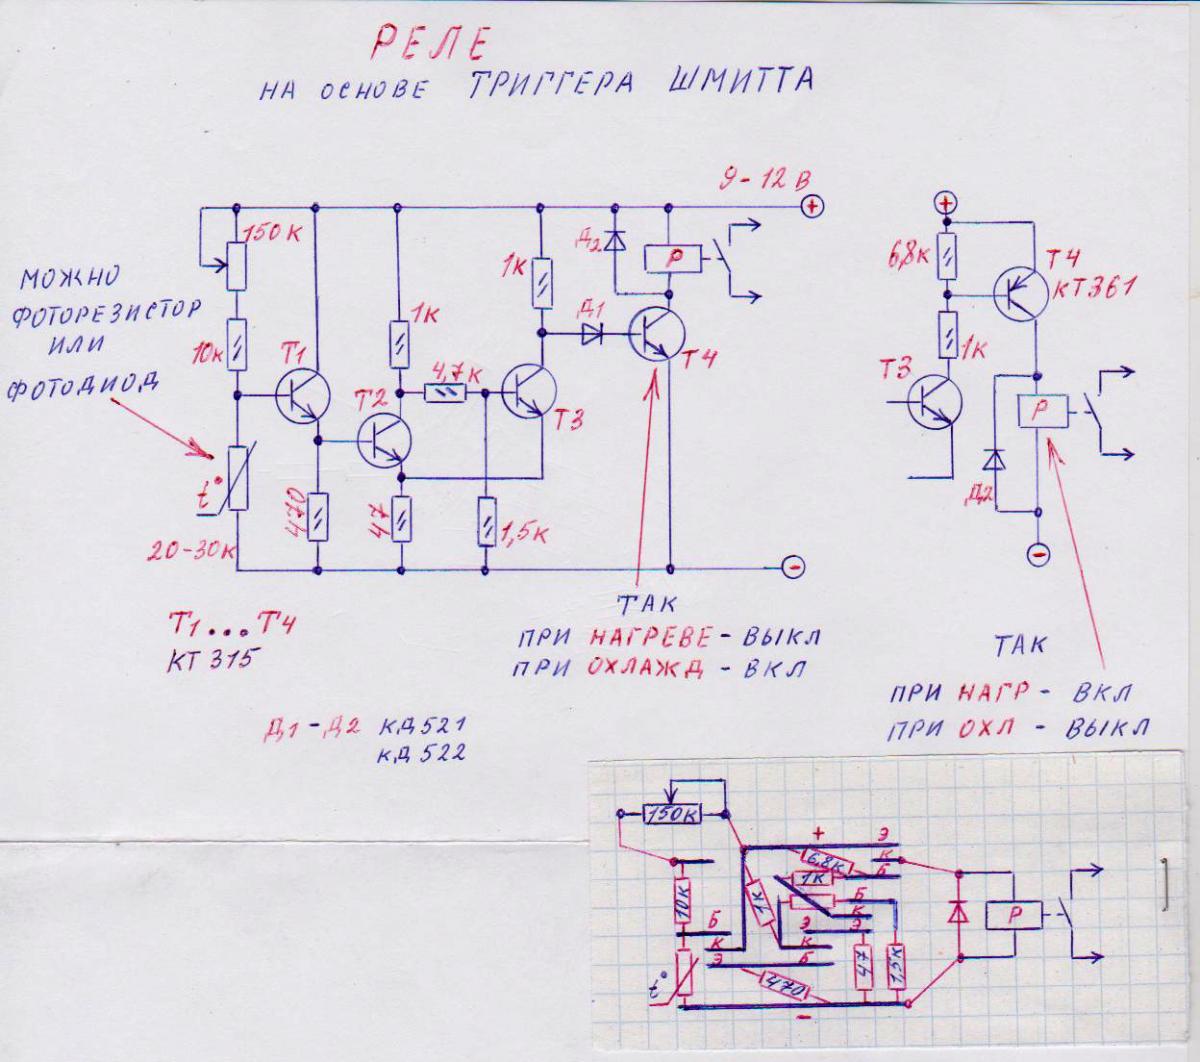 РЕЛЕ
НА ОСНОВЕ ТРИГГЕРА ШМИТТА
9-12 В
+
150К
Д2
Р
МОЖНО
ФОТОРЕЗИСТОР
ИЛИ
ФОТОДИОД
10К
Т1
1К
Т2
4,7К
1К
Д1
Т3
Т4
t°
20-30К
470
47
1,5К
-
Т1...Т4
КТ 315
Д1-Д2 КД521
КД522
ТАК
ПРИ НАГРЕВЕ - ВЫКЛ
ПРИ ОХЛАЖД - ВКЛ
+
6,8К
Т4
КТ361
1К
Т3
Р
Д2
-
ТАК
ПРИ НАГР - ВКЛ
ПРИ ОХЛ - ВЫКЛ
150К
+
Э
6,8К
К
Б
1К
10К
1К
Б
К
Э
Б
К
Э
К
Б
Р
t°
470
47
1,5К
-